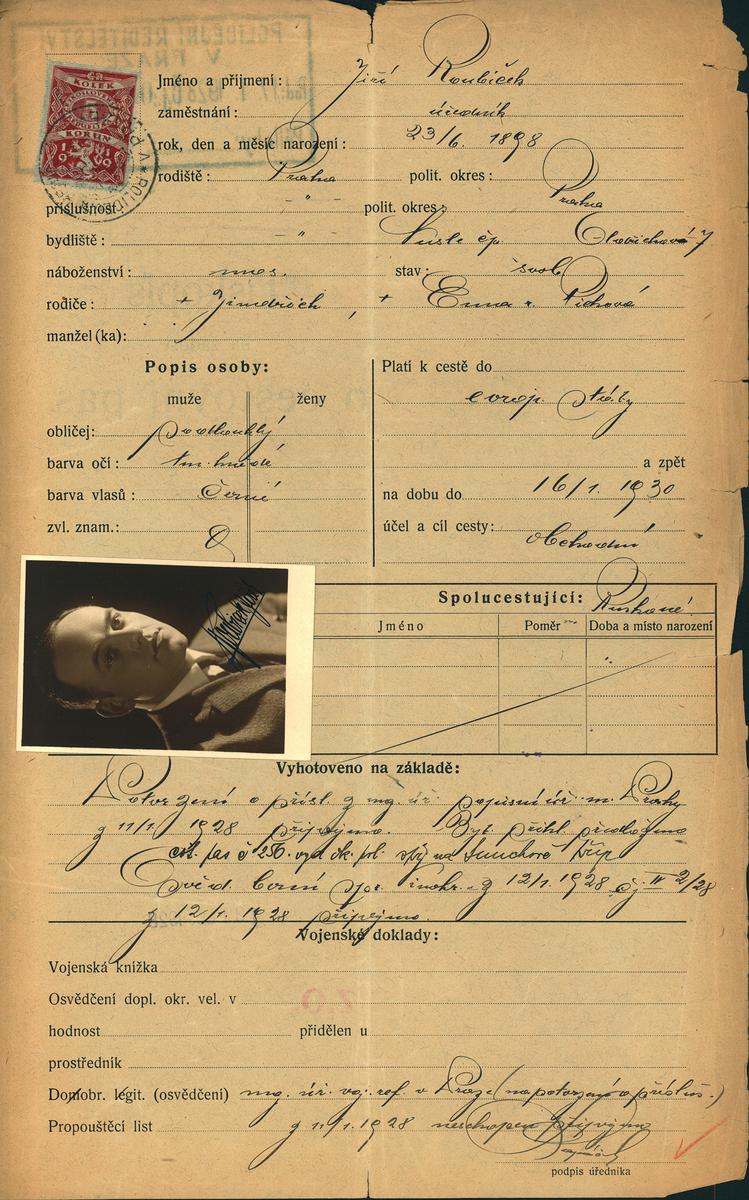 KOLEK
KORUN
Jméno a příjmení: Jiří Roubíček
zaměstnání: úředník
rok, den a měsíc narození: 23/6. 1898
rodiště: Praha polit. okres: Praha
příslušnost " polit. okres:
bydliště: " Nusle čp.
náboženství: mos. stav: svob.
rodiče: + Jindřich, + Emma r. Pickova
manžel (ka):
Popis osoby:
muže ženy
obličej: podlouhlý
barva očí: tm. hnědé
barva vlasů: černé
zvl. znam.:
Platí k cestě do
evrop. státy
a zpět
na dobu do 16/1. 1930
účel a cíl cesty: obchodní
Spolucestující:
Jméno Poměr Doba a místo narození
Vyhotoveno na základě:
Potvrzení o přísl. z mg. úř. popisní úř. m. Prahy
z 11/1. 1928 připojeno. Byt. přihl. předložena
z 12/1. 1928 čj. IV 2/28
z 12/1. 1928 připojeno.
Vojenské doklady:
Vojenská knížka
Osvědčení dopl. okr. vel. v
hodnost přidělen u
prostředník
Domobr. legit. (osvědčení) mg. úř. voj. ref. v Praze (na potvrzení o přísluš.)
Propouštěcí list z 11/1. 1928 neschopen připojeno
podpis úředníka